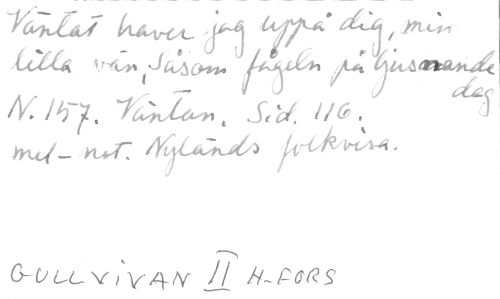 Väntat haver jag uppå dig, min
lilla vän, Såsom fågeln på ljusnande
dag
N. 157. Väntan. Sid. 116.
mel-not. Nylands folkvisa.
GULLVIVAN II H-FORS